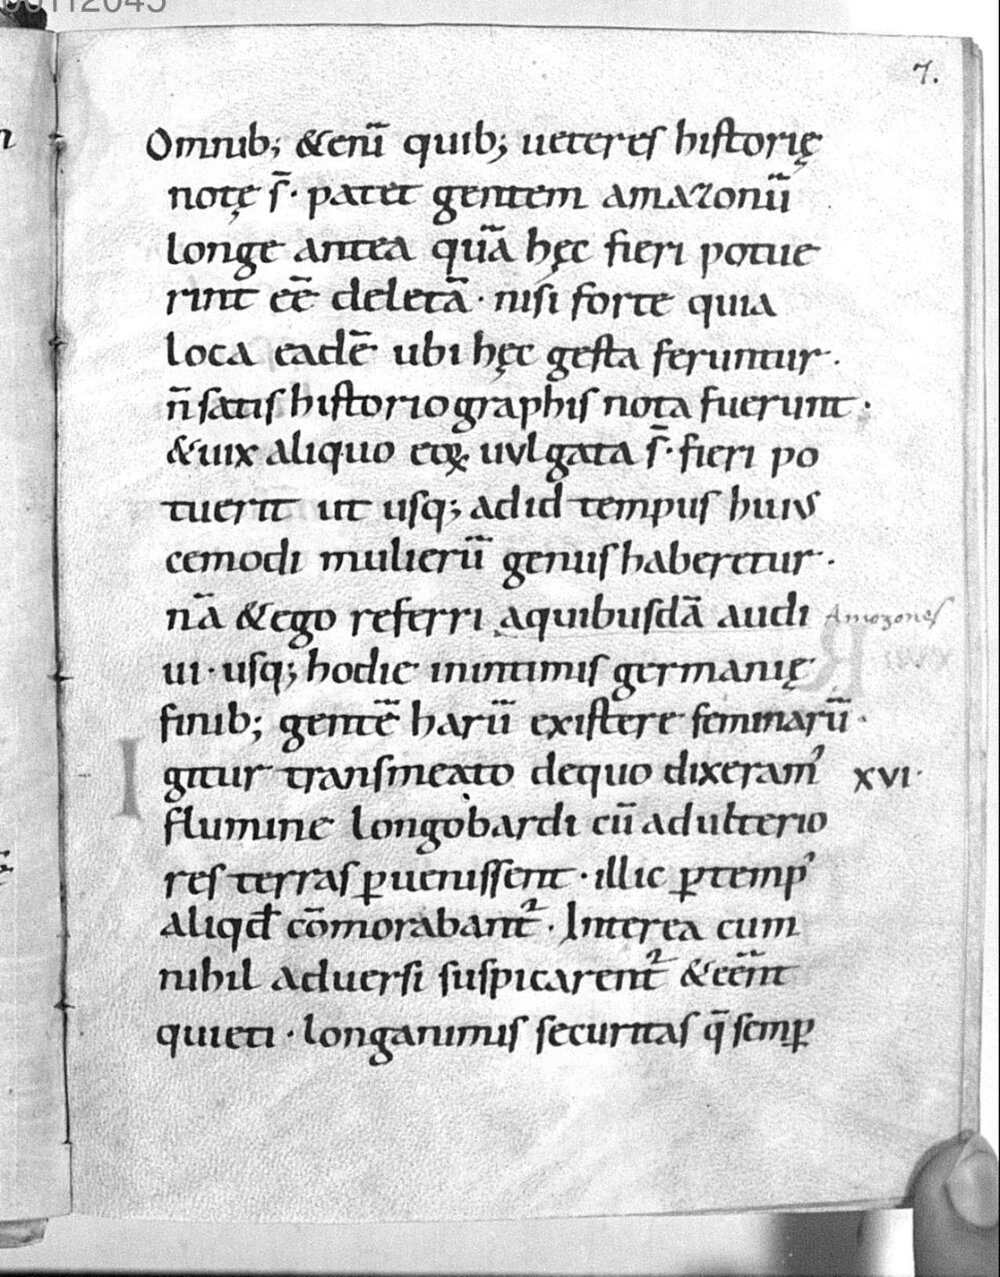 7.
Omnib; &enī quib; ueteres historię
notę s̄· patet gentem amazonū
longe antea quā hęc fieri potue
rint eē deletā· nisi forte quia
loca eadē ubi hęc gesta feruntur·
n̄ satis historiographis nota fuerunt·
&uix aliquo eoꝝ uulgata s̄· fieri po
tuerit ut usq; adid tempus huius
cemodi mulierū genus haberetur·
nā &ego referri aquibusdā audi Amozones
ui· usq; hodie inintimis germanię
finib; gentē harū existere feminarū·
Igitur transmeato dequo dixeramꝰ XVI·
flumine longobardi cū adulterio
res terras ꝑuenissent· illic ꝑtempꝰ
aliqđ cōmorabant᷑· Interea cum
nihil aduersi suspicarent᷑ &eēnt
quieti· longanimis securitas q̄ semꝑ